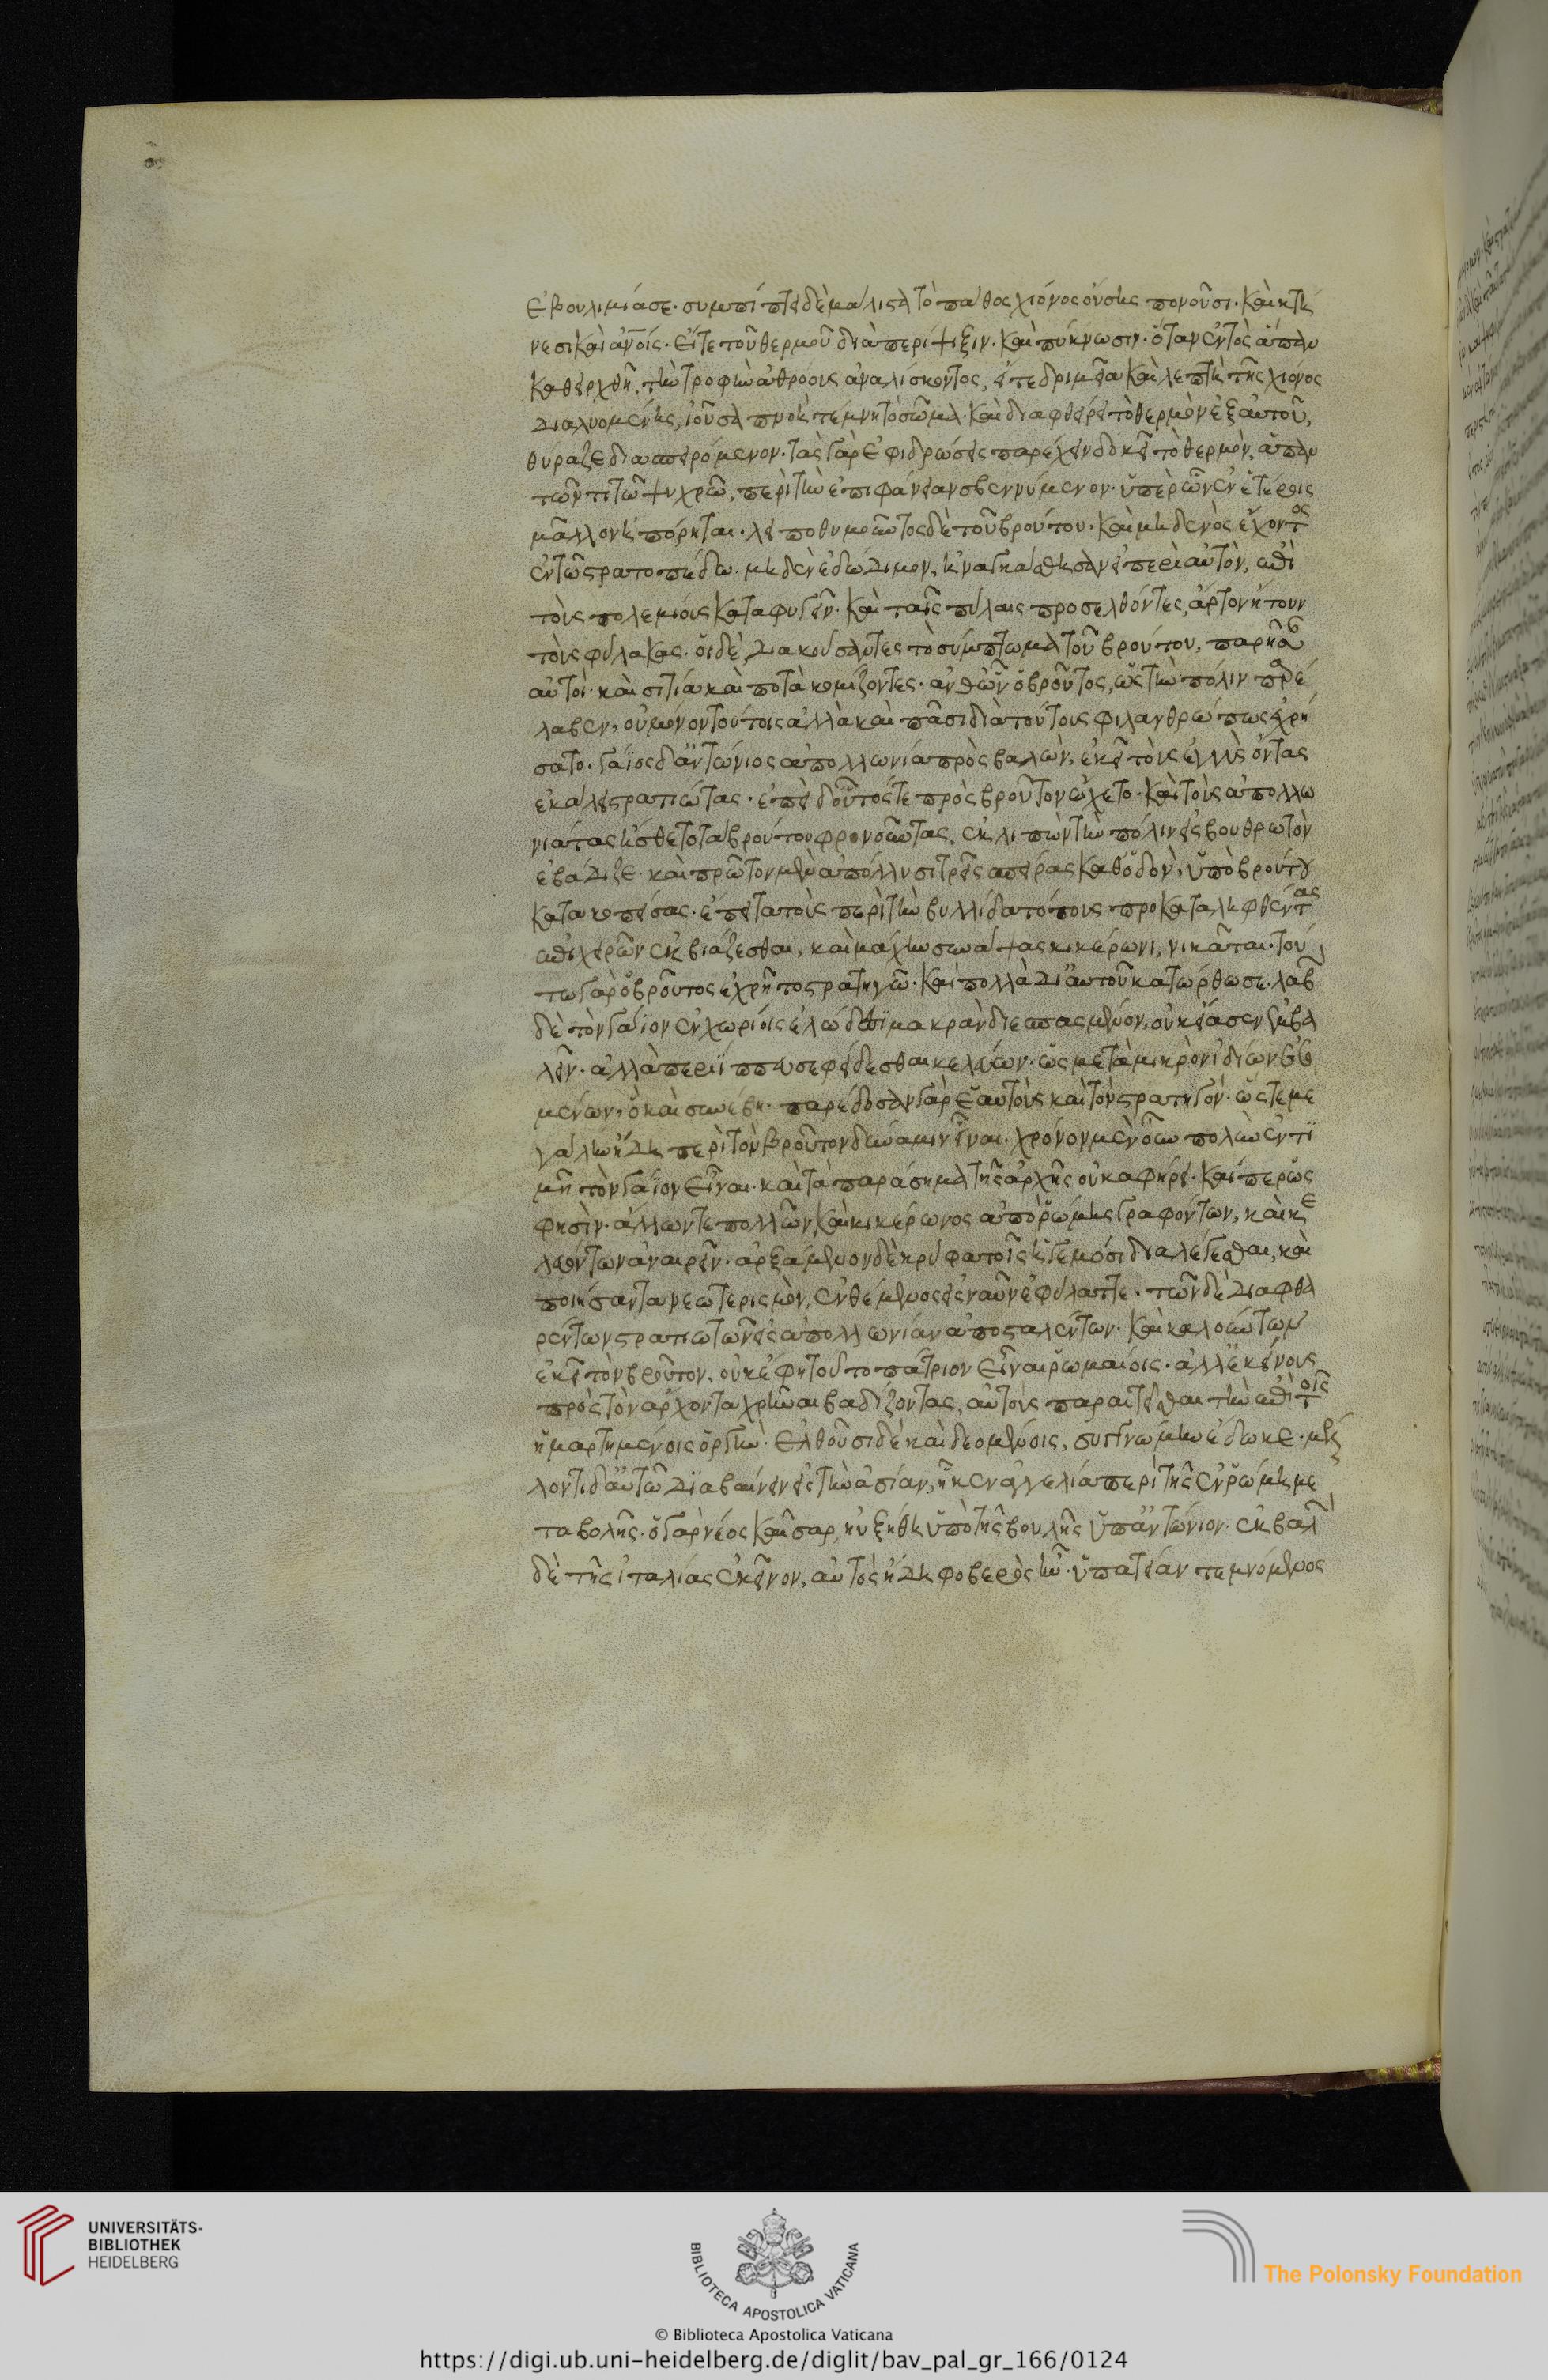 ἐβουλιμίασε· συμπίπτει δὲ μάλιστα τὸ πάθος χιόνος οὔσης πονοῦσι· καὶ κτή
νεσι καὶ ἀνοῖς· εἴτε τοῦ θερμοῦ διὰ περίψιξιν· καὶ πύκνωσιν· ὅταν ἐντὸς ἅπαν
καθειρχθῆ, τὴν τροφὴν ἀθρόους ἀναλίσκοντος, εἴτε δριμεῖα καὶ λεπτὴ τῆς χιόνος
διαλυομένης, ἰοῦσα πνοὴ τέμνη τὸ σῶμα· καὶ διαφθείρει τὸ θερμὸν ἐξ αὐτοῦ,
θύραζε διασπειρόμενον· τὰς γὰρ ἐφιδρώσεις παρέχειν δοκεῖ τὸ θερμὸν, ἅπαν
τῶντι τῶ ψυχρῶ, περὶ τὴν ἐπιφάνειαν σβεννύμενον· ὑπὲρ ὧν ἐν ἑτέροις
μᾶλλον ἠπόρηται· λειποθυμοῦντος δὲ τοῦ βρούτου· καὶ μηδενὸς ἔχοντος
ἐν τῶ στρατοπέδω· μηδὲν ἐδώδιμον, ἠναγκάσθησαν οἱ περὶ αὐτὸν, ἐπὶ
τοὺς πολεμίους καταφυγεῖν· καὶ ταῖς πύλαις προσελθόντες, ἄρτον ἤτουν
τοὺς φύλακας· οἱ δὲ, διακούσαντες τὸ σύμπτωμα τοῦ βρούτου, παρῆσαν
αὐτοὶ· καὶ σιτία καὶ ποτὰ κομίζοντες· ἀνθ ὧν ὁ βροῦτος, ὡς τὴν πόλιν παρέ
λαβεν, οὐ μόνον τούτοις ἀλλὰ καὶ πᾶσι διὰ τούτους φιλανθρώπως ἐχρή
σατο· γάϊος δ' ἀντώνιος ἀπολλωνία πρὸς βαλὼν, ἐκεῖ τοὺς ἐγγὺς ὄντας
ἐκάλει στρατιώτας· ἐπεὶ δ' οὗτοί τε πρὸς βροῦτον ὤχετο· καὶ τοὺς ἀπολλω
νιάτας ἤσθετο τὰ βρούτου φρονοῦντας, ἐκλιπὼν τὴν πόλιν εἰς βουθρωτὸν
ἐβάδιζε· καὶ πρῶτον μὲν ἀπόλλυσι τρεῖς σπείρας καθ' ὁδὸν, ὑπὸ βρούτου
κατακοπείσας· ἔπειτα τοὺς περὶ τὴν βυλλίδα τόπους προκαταληφθέντας
ἐπιχειρῶν ἐκβιάζεσθαι, καὶ μάχην συνάψας κικέρωνι, νικᾶται· τού
τω γὰρ ὁ βροῦτος ἐχρῆτο στρατηγῶ· καὶ πολλὰ δι' αὐτοῦ κατώρθωσε· λαβὼν
δὲ τὸν γάϊον ἐν χωρίοις ἑλώδεσι μακρὰν διεσπασμένον, οὐκ εἴασεν ἐμβα
λεῖν· ἀλλὰ περιϊππευσε φείδεσθαι κελεύων· ὡς μετὰ μικρὸν ἰδίων ἐσο
μένων, ὃ καὶ συνέβη· παρέδοσαν γὰρ ἑαυτοὺς καὶ τὸν στρατηγόν· ὥστε με
γάλην ἤδη περὶ τὸν βροῦτον δύναμιν εἶναι· χρόνον μὲν οὖν πολὺν ἐν τι
μῆ τὸν γάϊον εἶχε· καὶ τὰ παράσημα τῆς ἀρχῆς οὐκ ἀφήρει· καίπερ ὥς
φησὶν· ἄλλων τε πολλῶν, καὶ κικέρωνος ἀπὸ ῥώμης γραφόντων, καὶ κε
λευόντων ἀναιρεῖν· ἀρξάμενον δὲ κρύφα τοῖς ἡγεμόσι διαλέγεσθαι, καὶ
ποιήσαντα νεωτερισμὸν, ἐνθέμενος εἰς ναῦν ἐφύλαττε· τῶν δὲ διαφθα
ρέντων στρατιωτῶν εἰς ἀπολλωνίαν ἀποσταλέντων· καὶ καλούντων
ἐκεῖ τὸν βροῦτον, οὐκ ἔφη τοῦτο πάτριον εἶναι ῥωμαίοις· ἀλλ' ἐκείνους
πρὸς τὸν ἄρχοντα χρῆναι βαδίζοντας, αὐτοὺς παραιτεῖσθαι τὴν ἐπὶ τοῖς
ἡμαρτημένοις ὀργὴν· ἐλθοῦσι δὲ καὶ δεομένοις, συγγνώμην ἔδωκε· μέλ
λοντι δ' αὐτῶ διαβαίνειν εἰς τὴν ἀσίαν, ἧκεν ἀγγελία περὶ τῆς ἐν ῥώμη με
ταβολῆς· ὁ γὰρ νέος καῖσαρ, ηὐξήθη ὑπὸ τῆς βουλῆς ὑπ' ἀντώνιον· ἐκβαλὼν
δὲ τῆς ἰταλίας ἐκεῖνον, αὐτὸς ἤδη φοβερὸς ἦν· ὑπατείαν τε μνώμενος
UNIVERSITÄTS-
BIBLIOTHEK
HEIDELBERG
BIBLIOTECA APOSTOLICA VATICANA
The Polonsky Foundation
© Biblioteca Apostolica Vaticana
https://digi.ub.uni-heidelberg.de/diglit/bav_pal_gr_166/0124